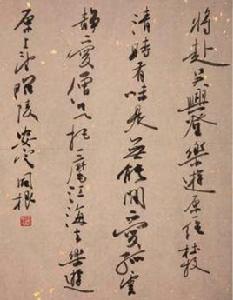 將赴吳興登樂遊原 杜牧
清時有味是無能閒愛孤雲
靜愛僧欲把一麾江海去樂遊
原上望昭陵